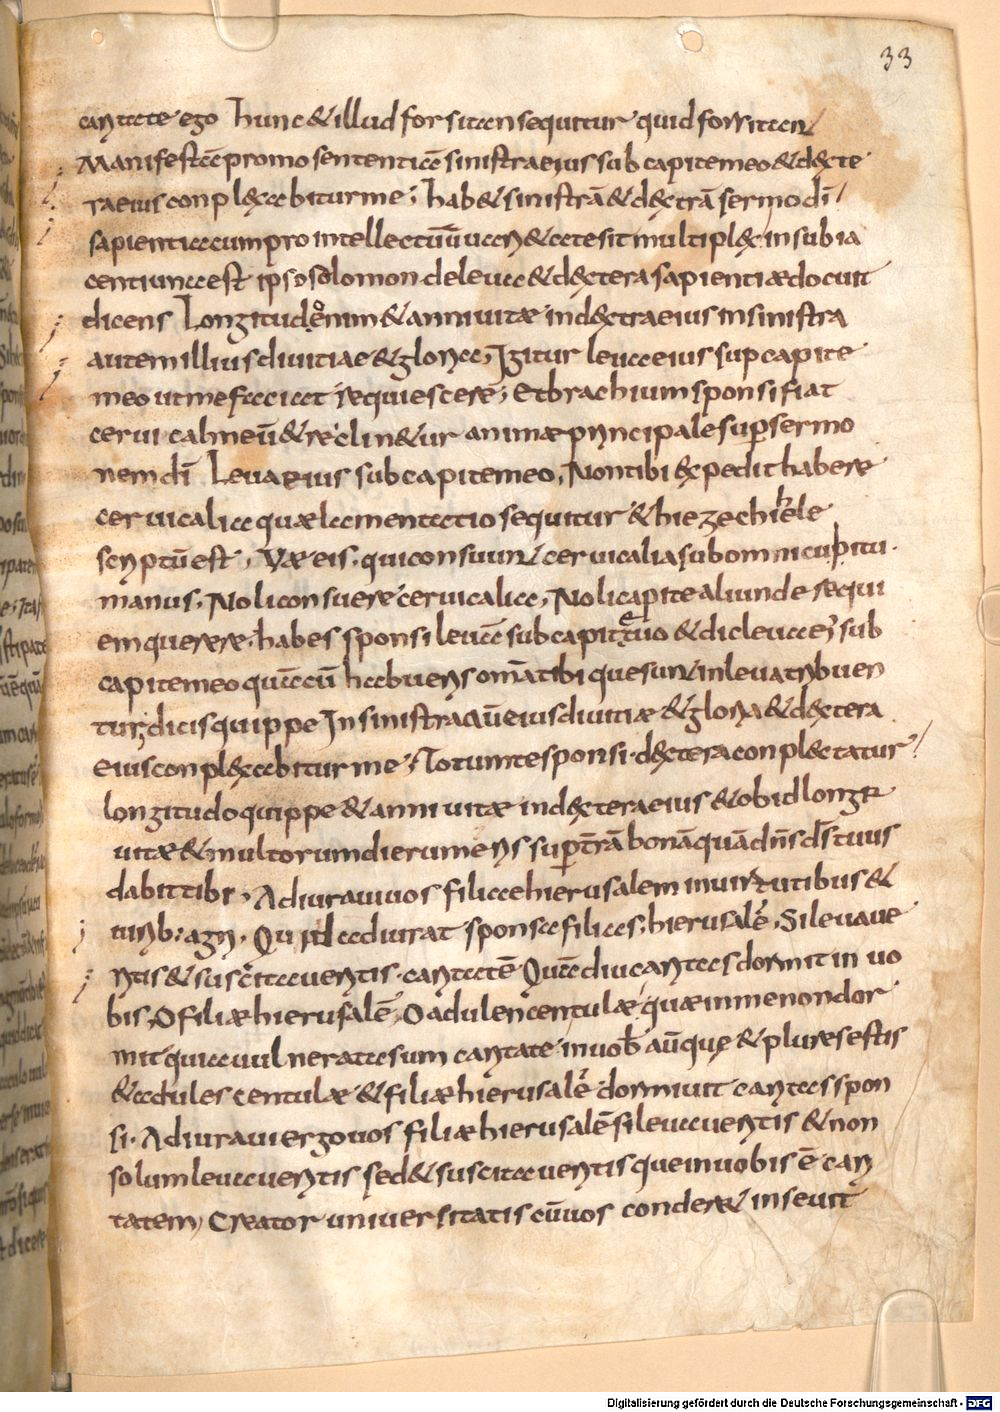 33
caritate ego hunc & illud forsitan sequitur quid forsitan
Manifesta promo sententia sinistra eius sub capite meo & dexte
ra eius conplexabitur me; hab& sinistrā & dextrā sermo dī
sapientia cum pro intellectuū uari&ate sit multiplex in subia
centi una est ipso solomon de leua & dextera sapientiæ docuit
dicens Longitudo enim & anni uitæ in dextra eius in sinistra
autem illius diuitiae & gloria, Igitur leua eius sup capite
meo ut me faciat requiescere; Et brachium sponsi fiat
ceruical meū & reclin&ur animæ principale super sermo
nem dī Leua eius sub capite meo, Non tibi expedit habere
ceruicalia quæ lamentatio sequitur & hiezechihele
scriptū est, Væ eis. qui consuunt ceruicalia sub omni cupitu.
manus, Noli consuere ceruicalia, Noli capite aliunde requi
em querere. habes sponsi leuā sub capite tuo & dic leua ei' sub
capite meo quā cū habueris omā tibi que sunt in leua tribuen
tur, dicis quippe In sinistra aū eius diuitiæ & gloria & dextera
eius conplexabitur me; Totum te sponsi. dextera conplectatur
longitudo quippe & anni uitæ in dextera eius & ob id longe
uitæ & multorum dierum eris sup trā bonā quā dn̄s ds̄ tuus
dabit tibi, Adiuraui uos filiae hierusalem in uirtutibus &
uirib; agri, Quid adiurat sponsa filias; hierusalē, Si leuaue
ritis & suscitaueritis. caritatē Quā diu caritas dormit in uo
bis, O filiæ hierusalē, O aduliscentulæ, quæ in me non dor
mit quia uulnerata sum caritate. in uob̄ aū que & plures estis
& adulescentulæ & filiæ hierusalē dormiuit caritas spon
si. Adiuraui ergo uos filiæ hierusalē si leuaueritis & non
solum leuaueritis sed & suscitaueritis que in uobis ē cari
tatem, Creator uniuersitatis cū uos conderet inseuit
Digitalisierung gefördert durch die Deutsche Forschungsgemeinschaft - DFG